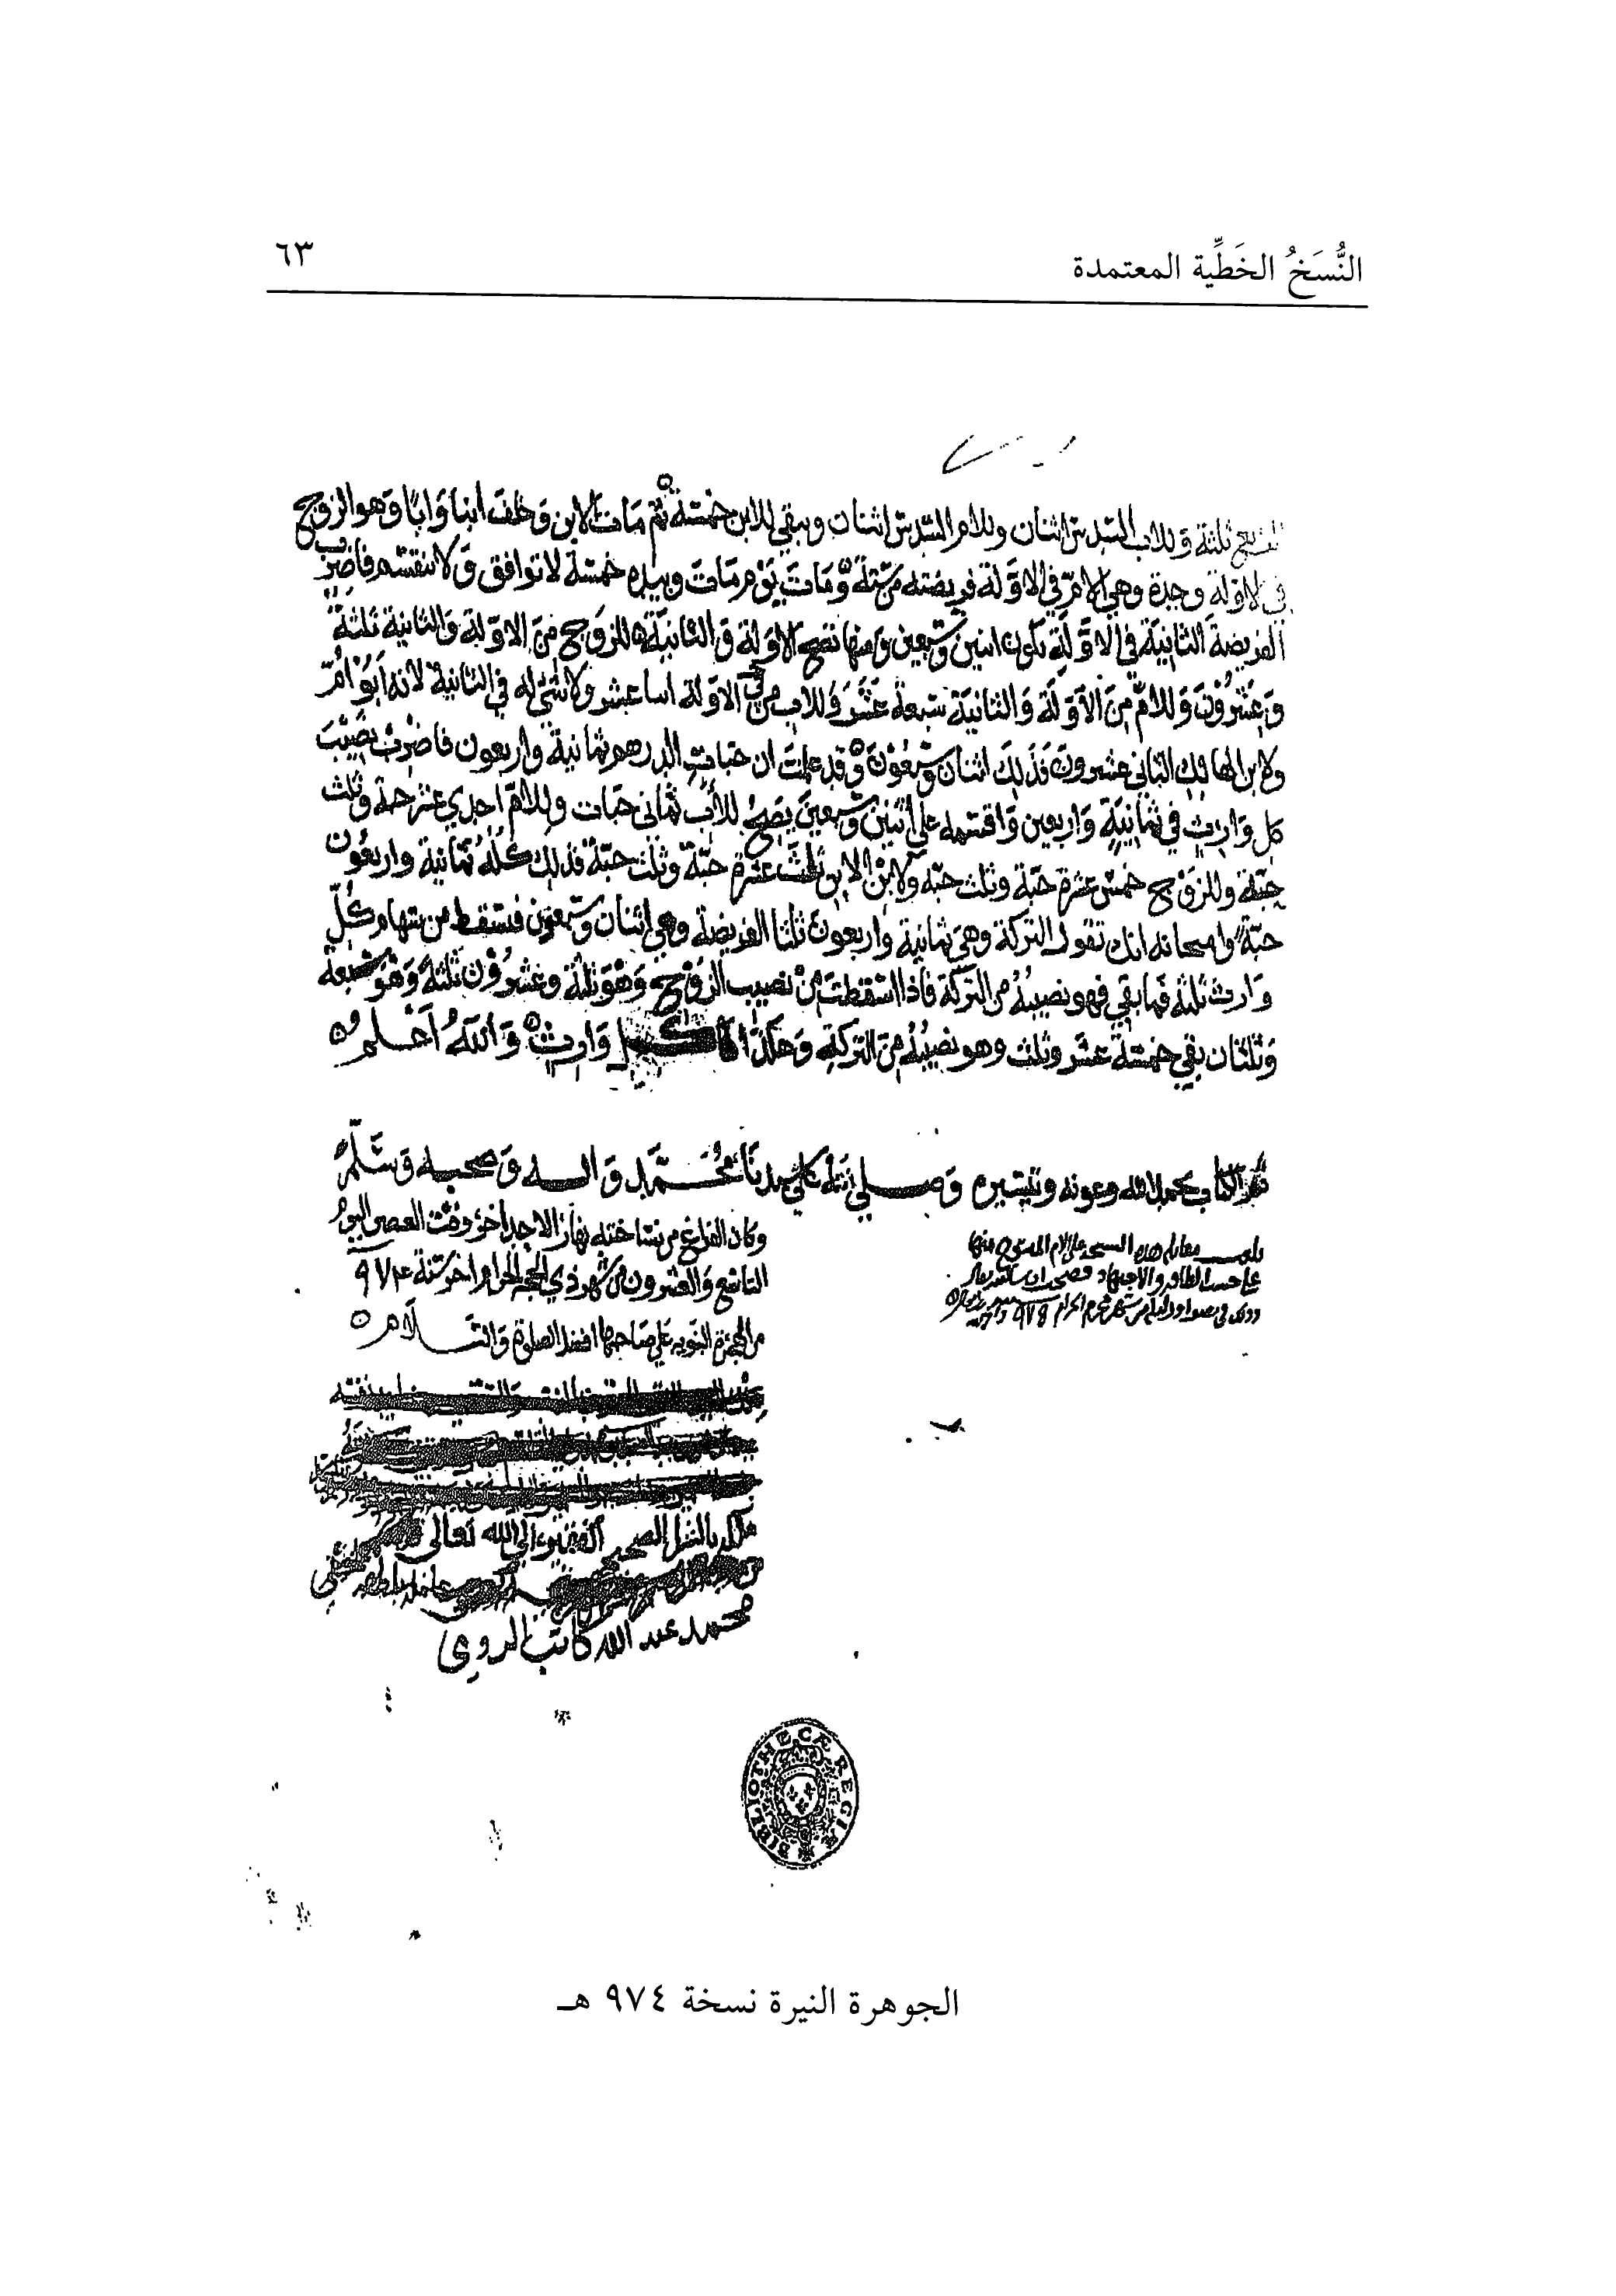 النُّسَخُ الخَطِّية المعتمدة
٦٣
الربع ثلثة وللاب السدس اثنان وللام السدس اثنان ويبقي للابن خمسة ثم مات الابن وخلف ابنا وابا وهو الزوج
في الاولة وجدة وهي الام في الاولة فريضته من ستة ومات يوم مات وبيده خمسة لا توافق ولا تنقسم فاضرب
الفريضة الثانية في الاولة تكون اثنين وسبعين ومنها تصح الاولة والثانية للزوج من الاولة والثانية ثلثة
وعشرون وللام من الاولة والثانية سبعة عشر وللاب من الاولة اثنا عشر ولا شئ له في الثانية لانه ابو ام
ولابن الهالك الثاني عشرون فذلك اثنان وسبعون وقد علمت ان حبات الدرهم ثمانية واربعون فاضرب نصيب
كل وارث في ثمانية واربعين واقسمه على اثنين وسبعين يصح للاب ثماني حبات وللام احدي عشر حبة وثلث
حبة وللزوج خمس عشرة حبة وثلث حبة ولابن الابن ثلث عشرة حبة وثلث حبة فذلك كله ثمانية واربعون
حبة وامتحانه انك تقول التركة وهي ثمانية واربعون ثلثا الفريضة وهي اثنان وسبعون فتسقط من سهام كل
وارث ثلثه فما بقي فهو نصيبه من التركة فاذا اسقطت من نصيب الزوج وهو ثلثة وعشرون ثلثه وهو سبعة
وثلثان بقي خمسة عشر وثلث وهو نصيبه من التركة وهكذا كل وارث والله اعلم
تم الكتاب بحمد الله وعونه وتيسيره وصلي الله على سيدنا محمد واله وصحبه وسلم
وكان الفراغ من نساخته نهار الاحد اخر وقت العصر اليوم
التاسع والعشرون من شهر ذي الحجة الحرام اخر سنة ٩٧٤
من الهجرة النبويه علي صاحبها افضل الصلوة والسلام
بلغت مقابلة هذه النسخة على الام المنسوخ منها
على حسب الطاقه والاجتهاد فصحت ان شاء الله تعالى
الفقير الى الله تعالى
محمد عبد الله كاتب الرومي
BIBLIOTHECÆ REGIÆ
الجوهرة النيرة نسخة ٩٧٤ هـ